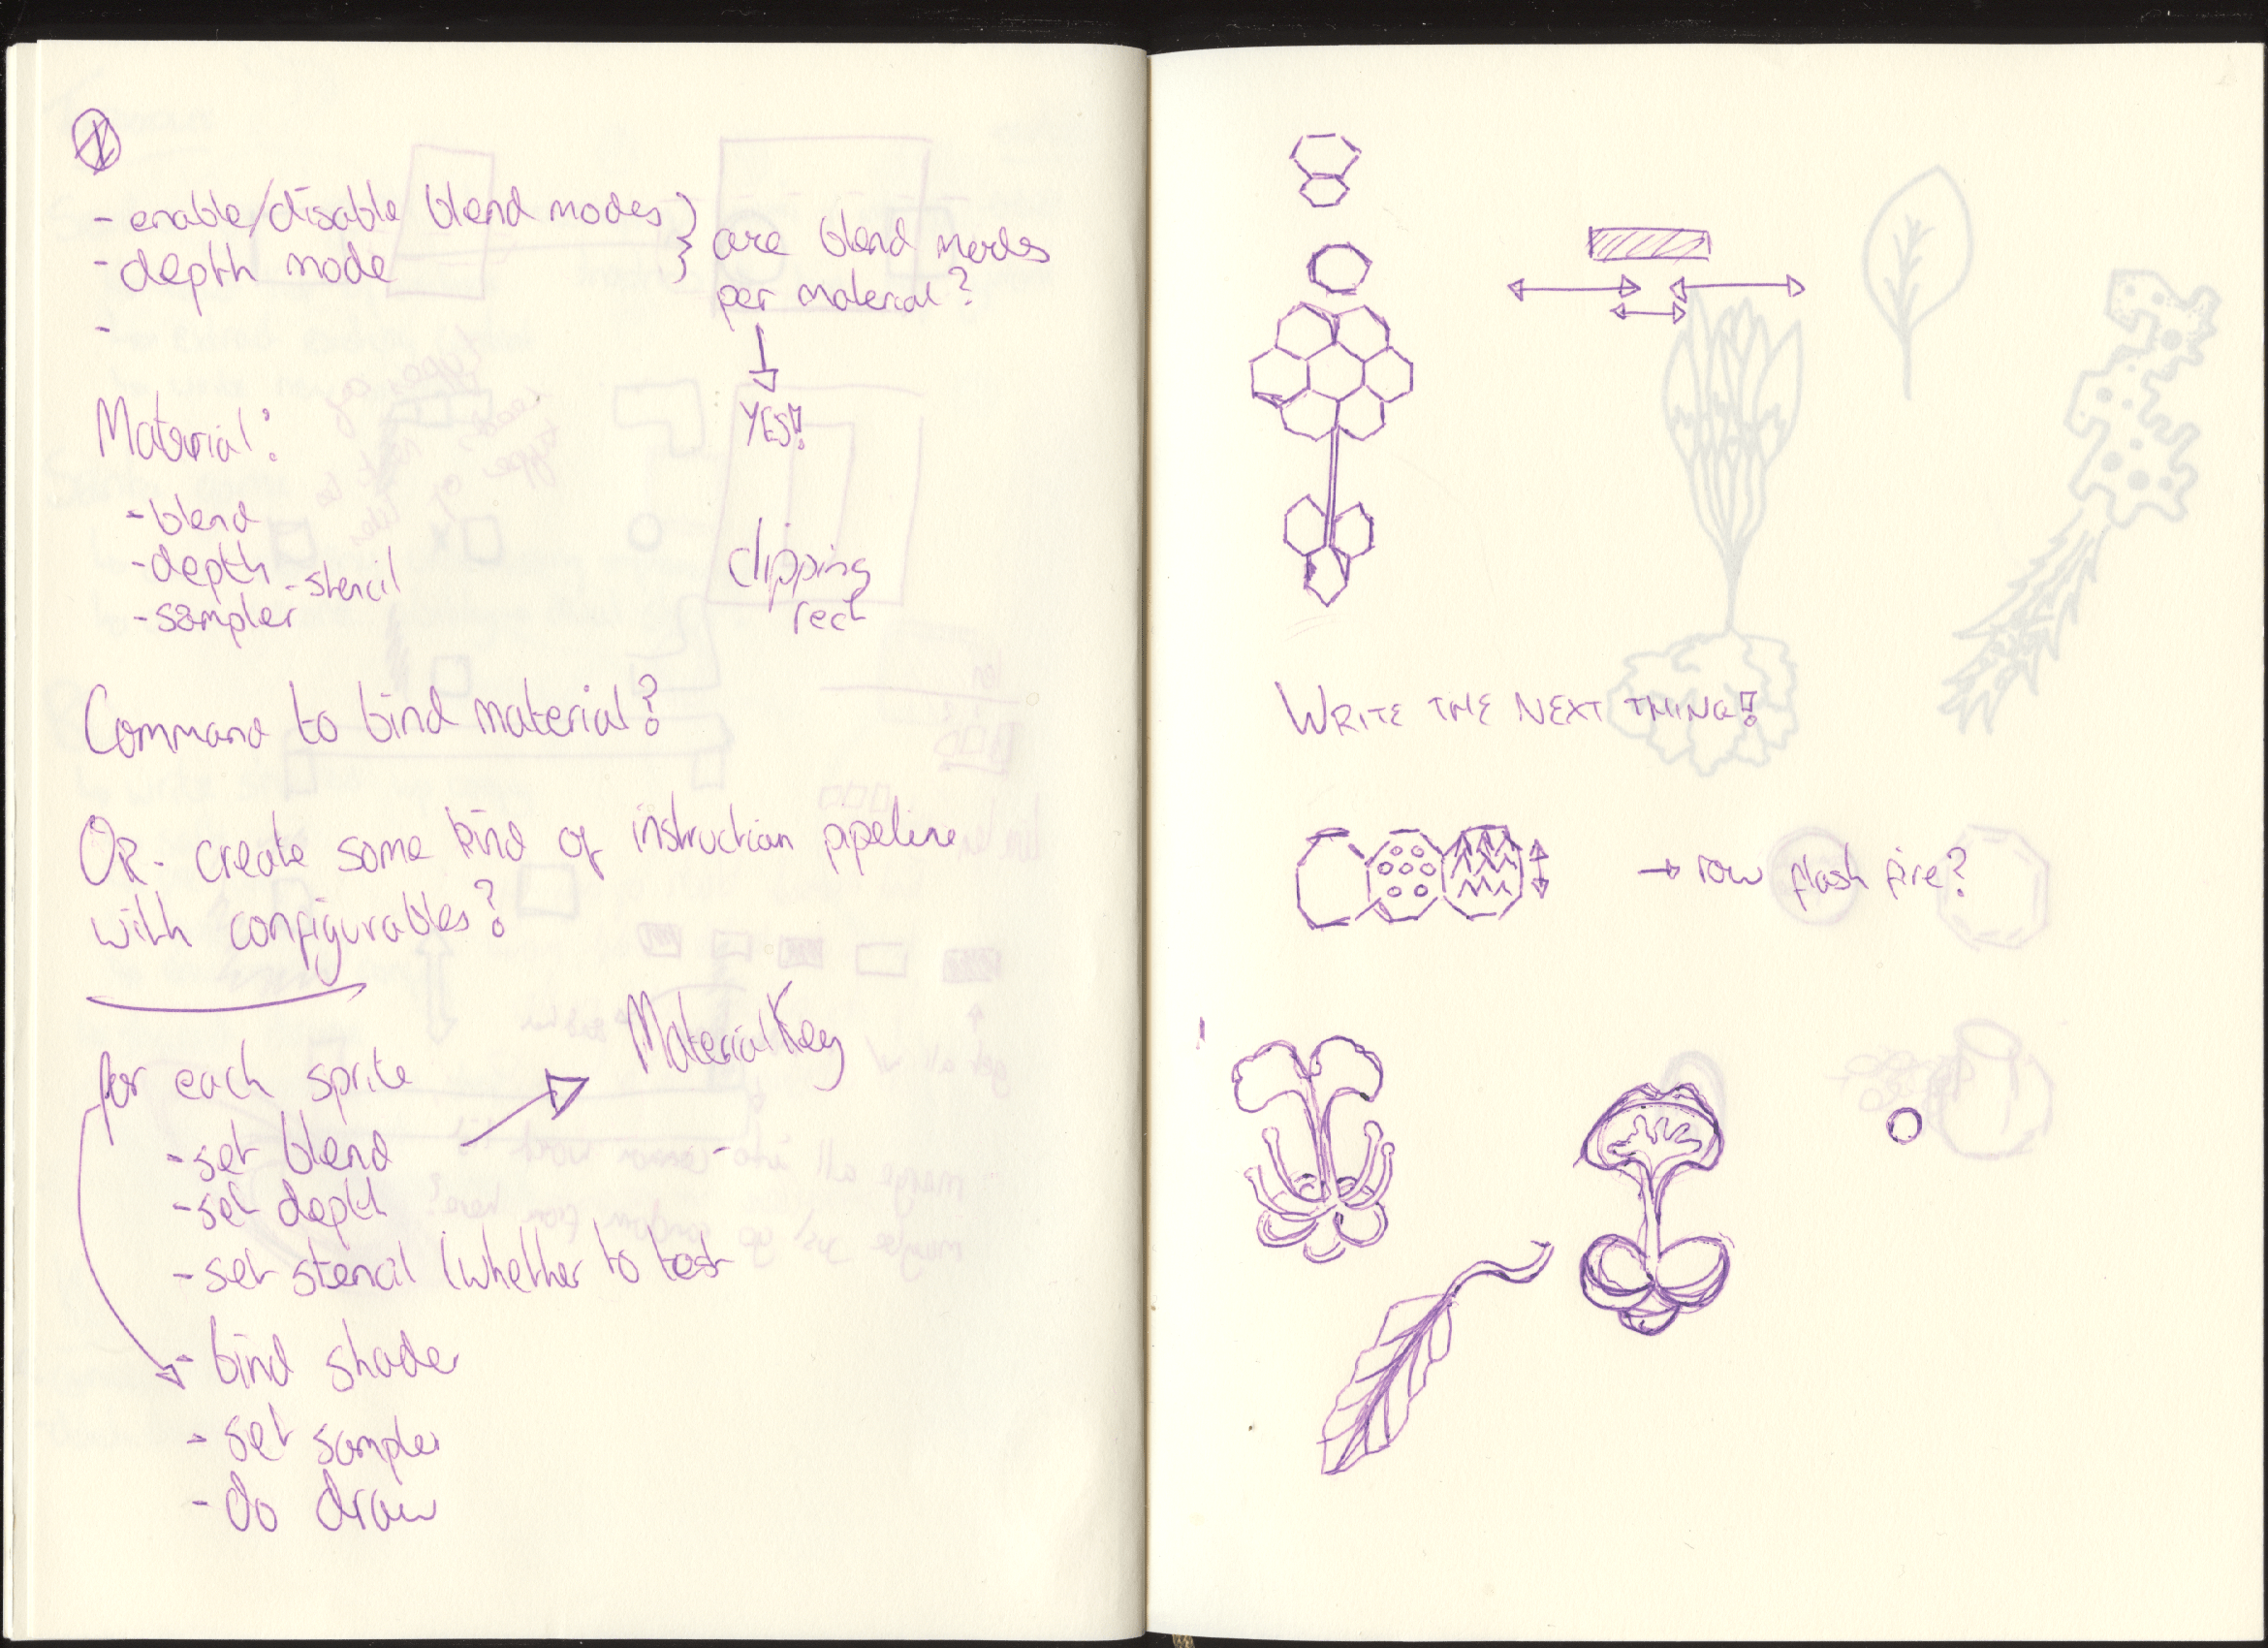 - enable/disable blend modes
- depth mode
-
are blend modes
per material?
YES!
Material:
- blend
- depth
- stencil
- sampler
clipping
rect
Command to bind material?
OR - create some kind of instruction pipeline
with configurables?
for each sprite
- set blend
- set depth
- set stencil (whether to test
- bind shader
- set sampler
- do draw
MaterialKey
-
WRITE THE NEXT THING!
→ row flash fire?